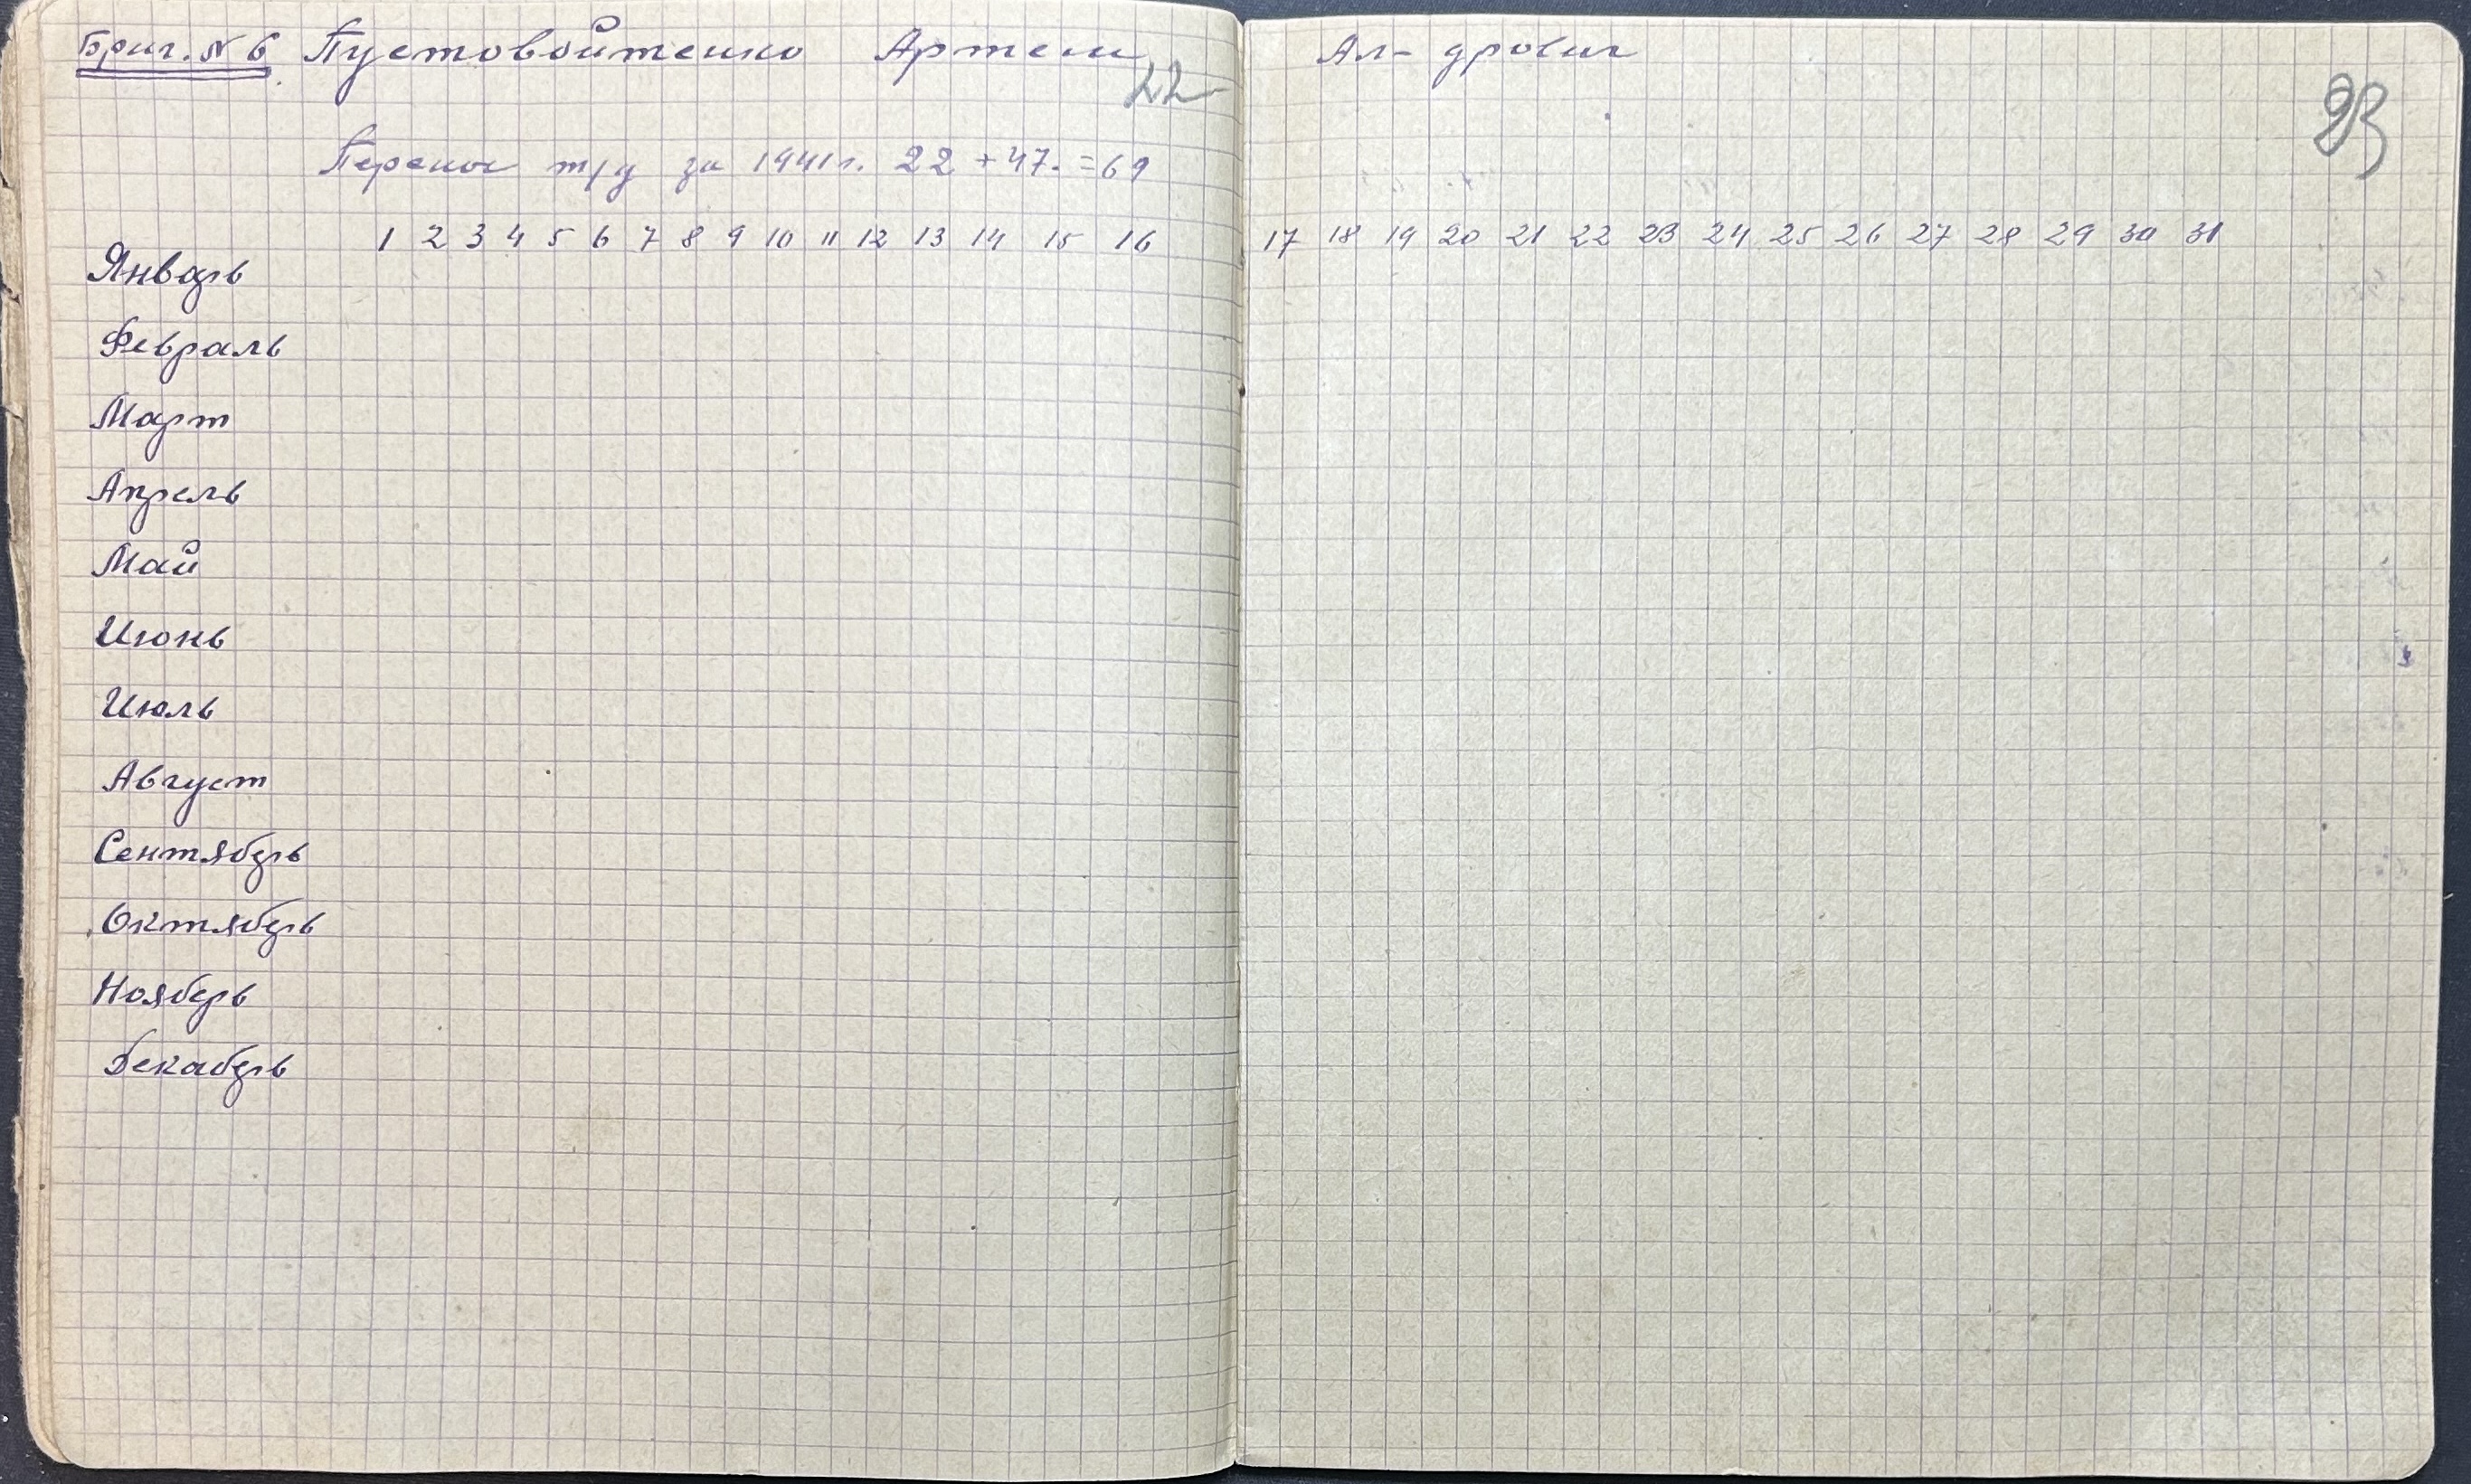 Бриг. № 6 Пустовойтенко Артем Ал-дрович
22
23
Перенос т/д за 1941 г. 22 + 47. = 69
1 2 3 4 5 6 7 8 9 10 11 12 13 14 15 16 17 18 19 20 21 22 23 24 25 26 27 28 29 30 31
Январь
Февраль
Март
Апрель
Май
Июнь
Июль
Август
Сентябрь
Октябрь
Ноябрь
Декабрь